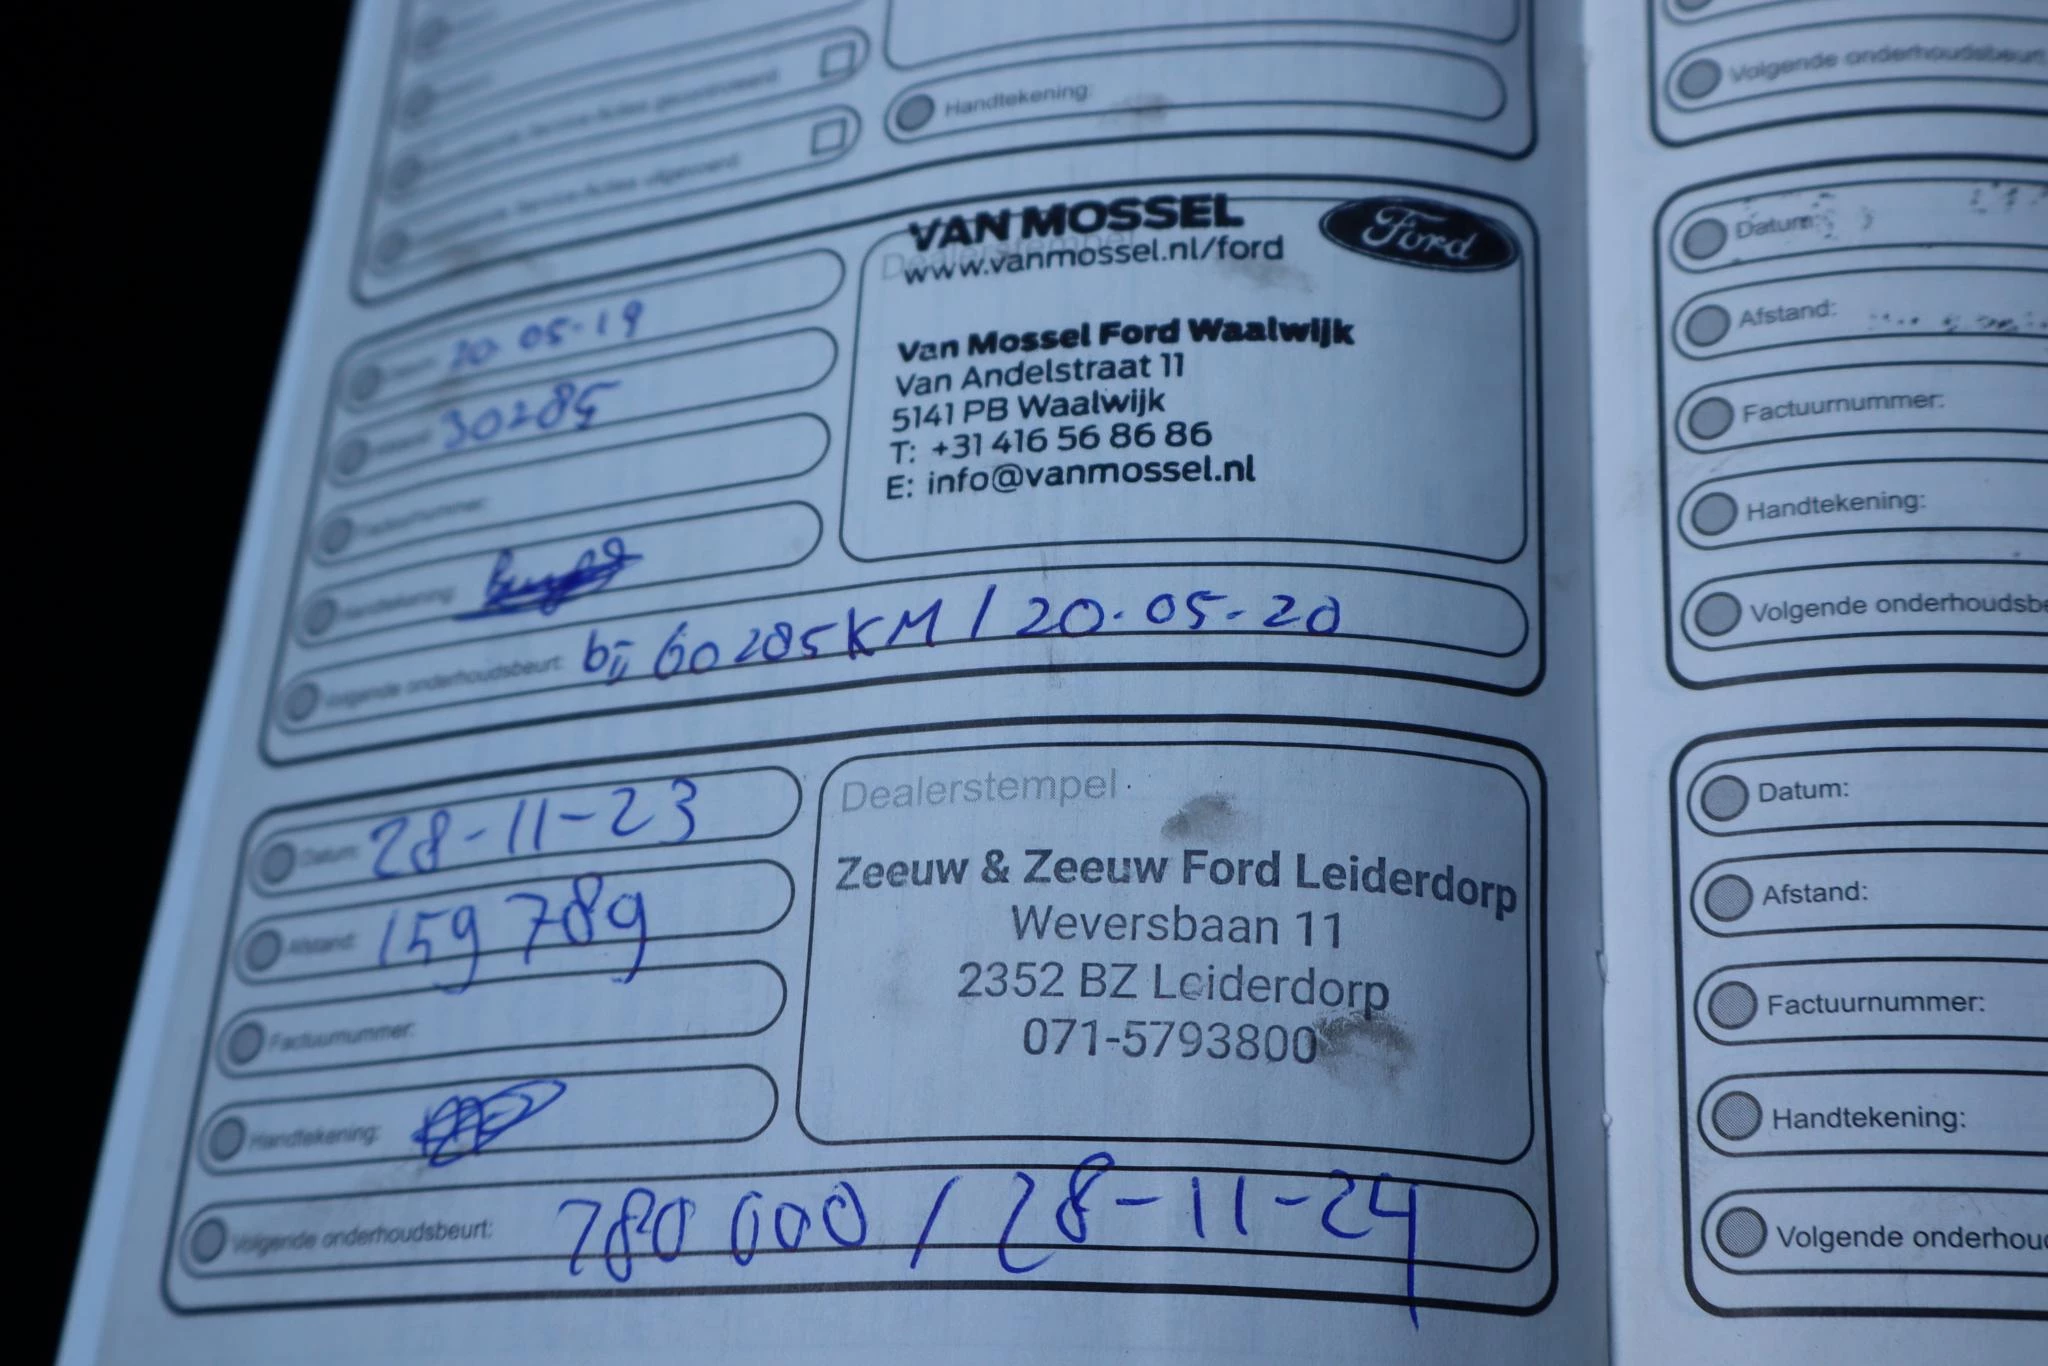 Handtekening:
VAN MOSSEL
Ford
Dealerstempel
www.vanmossel.nl/ford
20-05-19
30285
Van Mossel Ford Waalwijk
Van Andelstraat 11
5141 PB Waalwijk
T: +31 416 56 86 86
E: info@vanmossel.nl
Factuurnummer:
Handtekening:
Volgende onderhoudsbeurt: bij 60285KM / 20-05-20
Datum: 28-11-23
Afstand: 159 789
Factuurnummer:
Handtekening:
Dealerstempel
Zeeuw & Zeeuw Ford Leiderdorp
Weversbaan 11
2352 BZ Leiderdorp
071-5793800
Volgende onderhoudsbeurt: 780 000 / 28-11-24
Volgende onderhoudsbeurt
Datum:
Afstand:
Factuurnummer:
Handtekening:
Volgende onderhoudsbe
Datum:
Afstand:
Factuurnummer:
Handtekening:
Volgende onderhou